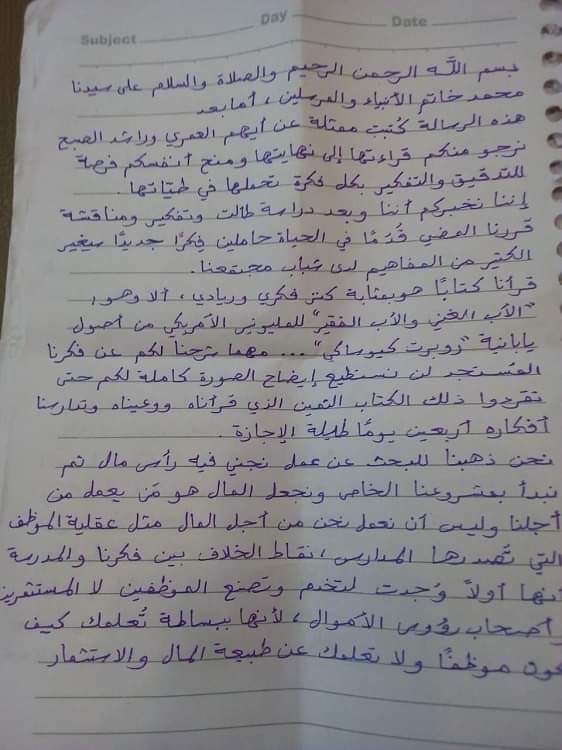 Subject Day Date
بسم اللّه الرحمن الرحيم والصلاة والسلام على سيدنا
محمد خاتم الأنبياء والمرسلين، أما بعد
هذه الرسالة كُتبت ممثلة عن أيهم العمري وراشد الصبح
نرجو منكم قراءتها إلى نهايتها ومنح أنفسكم فرصة
للتدقيق والتفكير بكل فكرة تحملها في طيّاتها.
إننا نخبركم أننا وبعد دراسة طالت وتفكير ومناقشة
قررنا المضي قُدمًا في الحياة حاملين فِكرًا جديدًا سيغير
الكثير من المفاهيم لدى شباب مجتمعنا.
قرأنا كتابًا هو بمثابة كنز فكري وريادي، ألا وهو:
"الأب الغني والأب الفقير" للمليونير الأمريكي من أصول
يابانية "روبرت كيوساكي"... مهما شرحنا لكم عن فكرنا
المُستجد لن نستطيع إيضاح الصورة كاملة لكم حتى
تقرءوا ذلك الكتاب الثمين الذي قرأناه ووعيناه وتدارسنا
أفكاره أربعين يومًا طيلة الإجازة.
نحن ذهبنا للبحث عن عمل نجني فيه رأس مال ثم
نبدأ بمشروعنا الخاص ونجعل المال هو مَن يعمل من
أجلنا وليس أن نعمل نحن من أجل المال مثل عقلية الموظف
التي تُصدرها المدارس، نقاط الخلاف بين فكرنا والمدرسة
أنها أولاً وُجدت لتخدم وتصنع الموظفين لا المستثمرين
وأصحاب رؤوس الأموال، لأنها ببساطة تُعلمك كيف
تكون موظفًا ولا تعلمك عن طبيعة المال والاستثمار